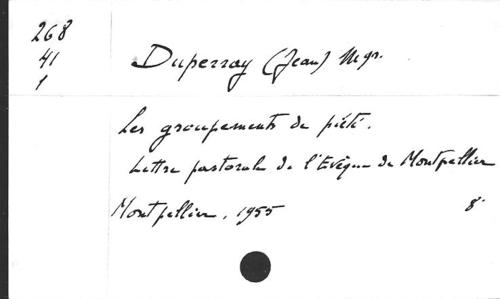 268
41
1
Duperray (Jean) Mgr.
Les groupements de piété.
Lettre pastorale de l'Evêque de Montpellier
Montpellier, 1955 8°